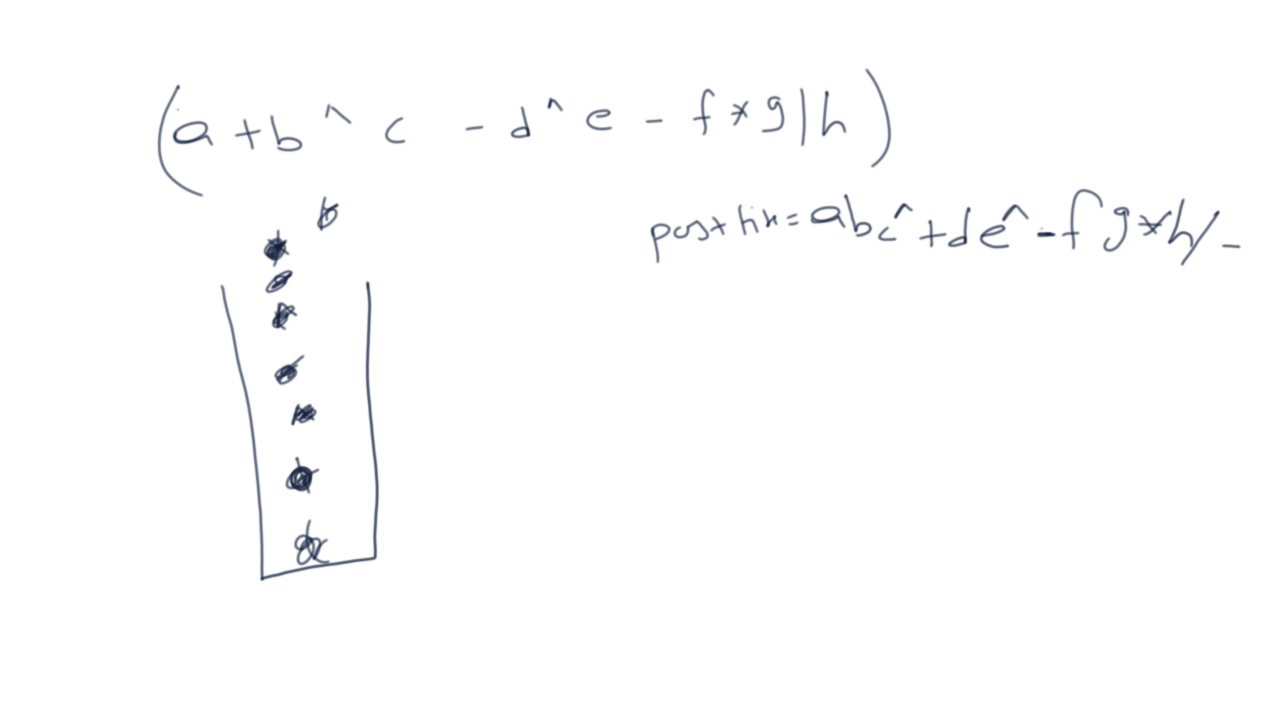 (a + b ^ c - d ^ e - f * g | h)
postfix = abc^+de^-fg*h/-